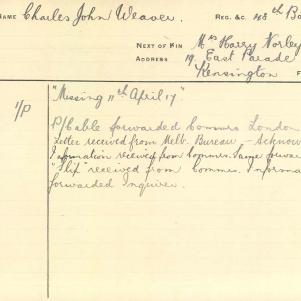 NAME Charles John Weaver. REG. &C. 48th Ba
NEXT OF KIN Mrs Harry Norley
ADDRESS 19, East Parade
Kensington
"Missing 11th April 17".
I/P P/Cable forwarded Commrs London
Letter received from Melb. Bureau - Acknow
Information received from Commrs. Same forwar
"Slip received from Commrs. Informa
forwarded Inquirer.